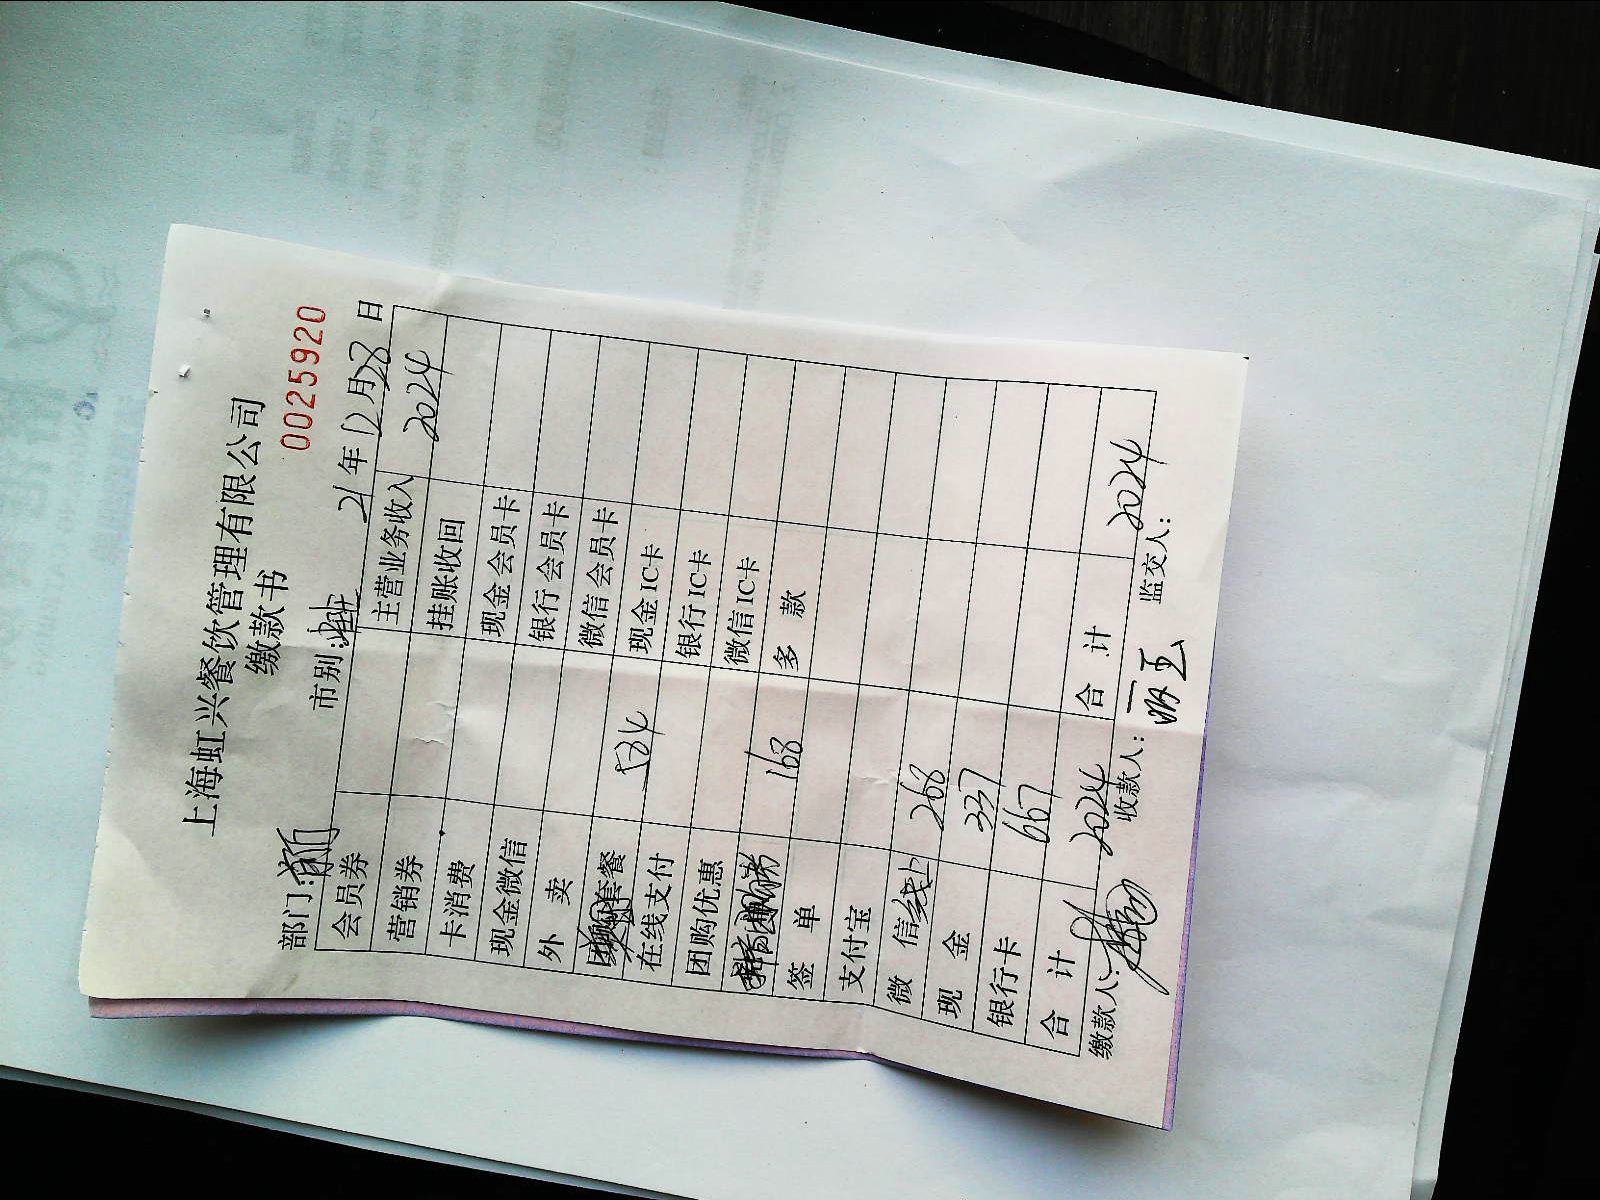 上海虹兴餐饮管理有限公司
缴款书
0025920
部门: 前 市别: 21年12月28日
会员券 主营业务收入 2024
营销券 挂账收回
卡消费 现金会员卡
现金微信 银行会员卡
外卖 微信会员卡
套餐 584 现金IC卡
在线支付 银行IC卡
团购优惠 微信IC卡
168 多款
签单
支付宝
微信 线上 268
现金 337
银行卡 667
合计 2024 合计 2024
缴款人: 收款人: 监交人: